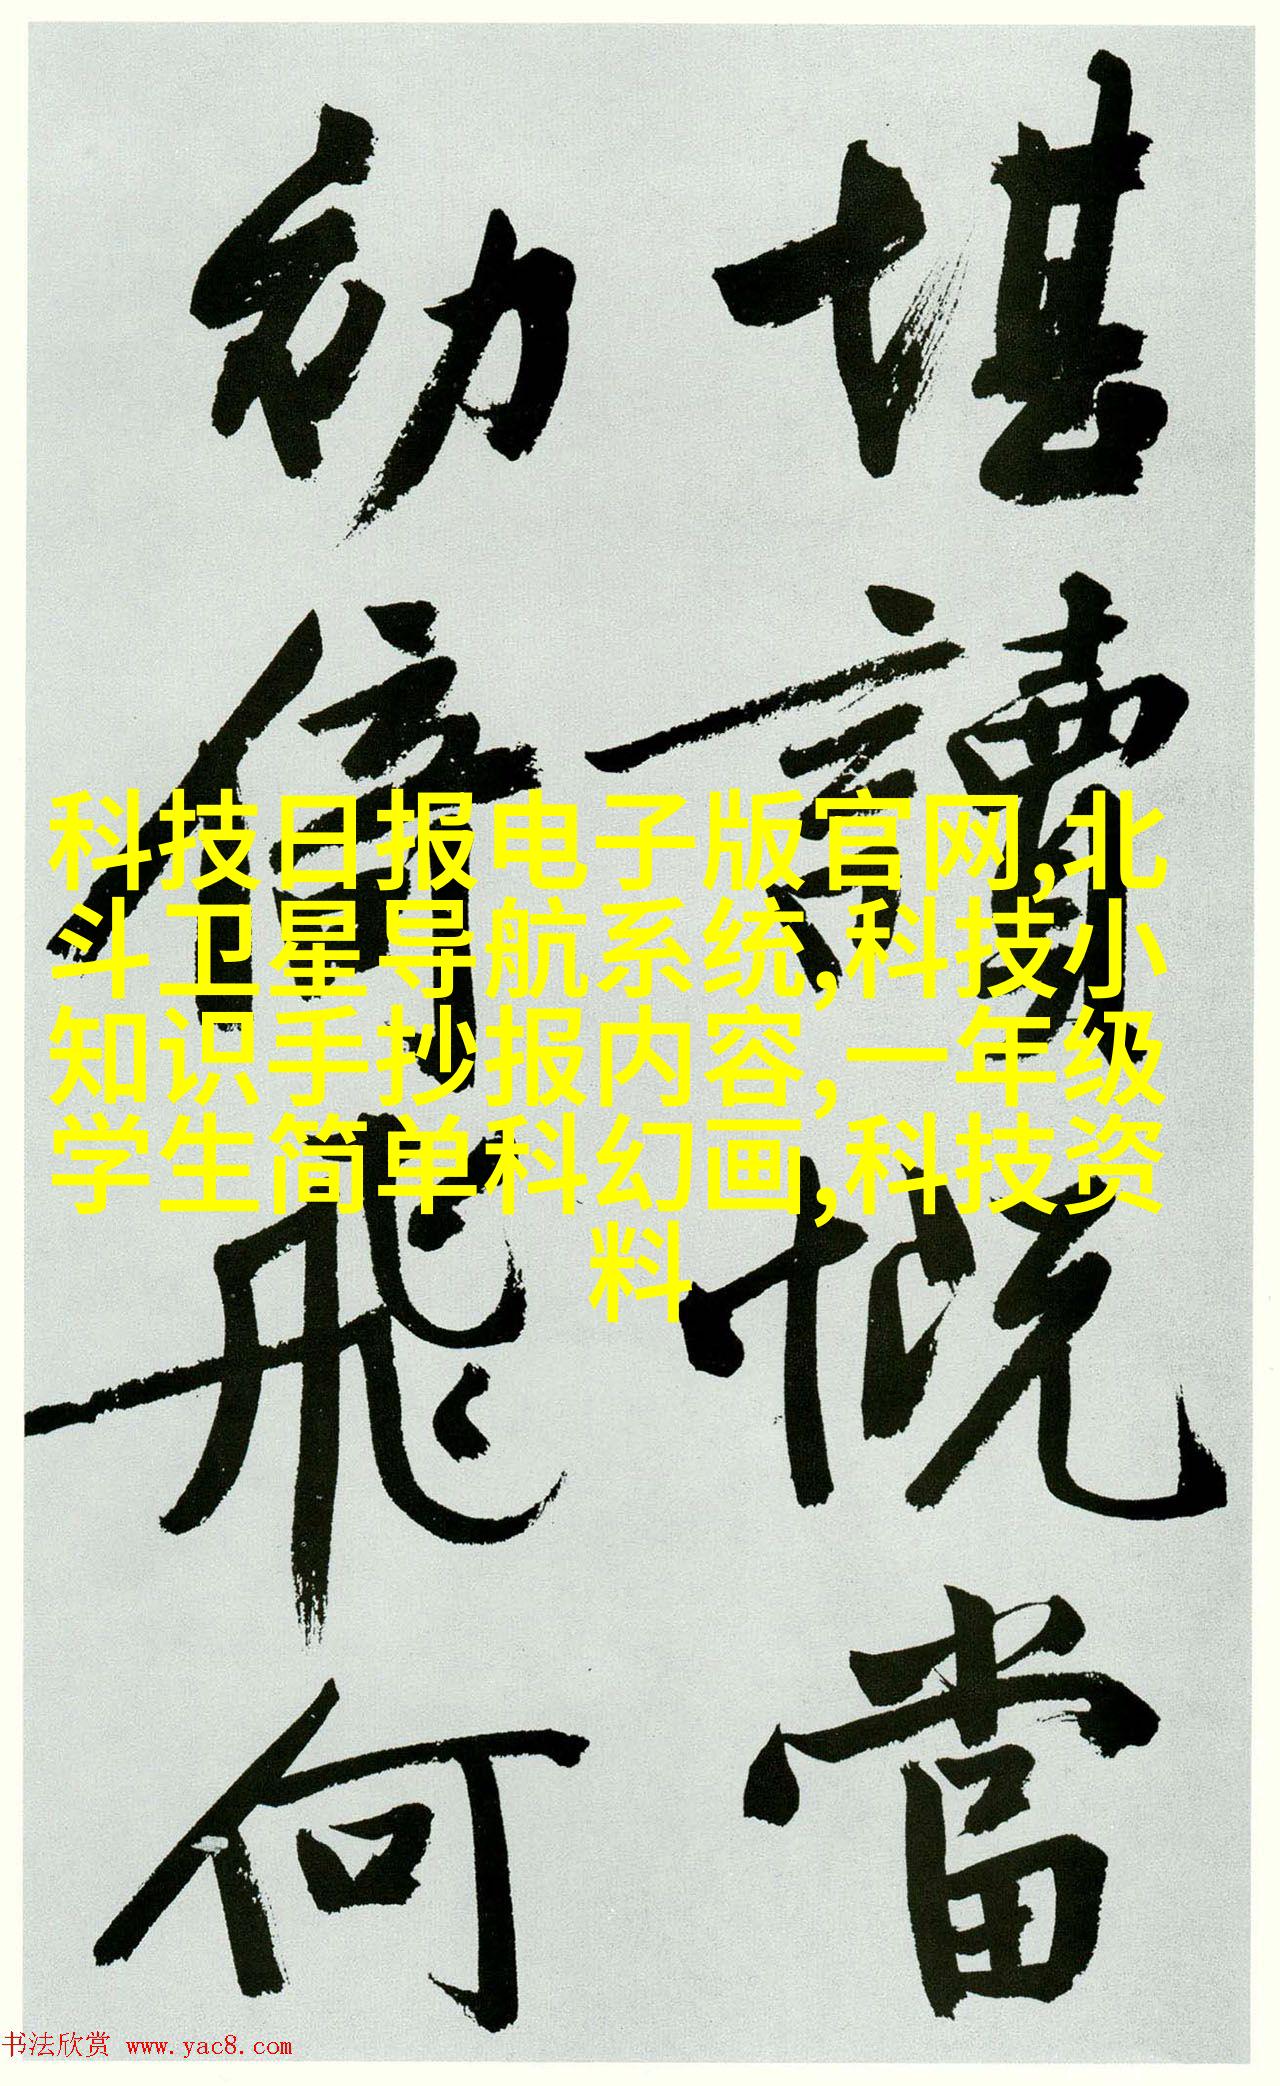 堪讀慨當
幼倍飛何
科技日报电子版官网,北
斗卫星导航系统,科技小
知识手抄报内容,一年级
学生简单科幻画,科技资
料
书法欣赏 www.yac8.com